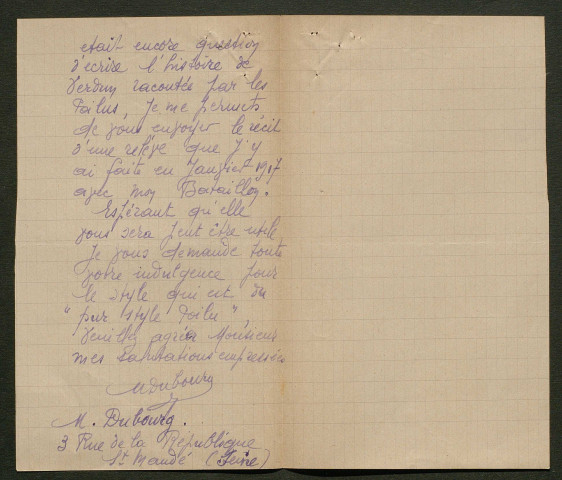 était encore question
d'ecrire l'histoire de
Verdun racontée par les
Poilus, je me permets
de vous envoyer le récit
d'une relève que j'y
ai faite en Janvier 1917
avec mon Bataillon.
Espérant qu'elle
vous sera peut être utile
je vous demande toute
votre indulgence pour
le style qui est du
"pur style Poilu",
Veuillez agréer Monsieur
mes Salutations empressées
MDubourg
M. Dubourg.
3 Rue de la République
St Mandé (Seine)